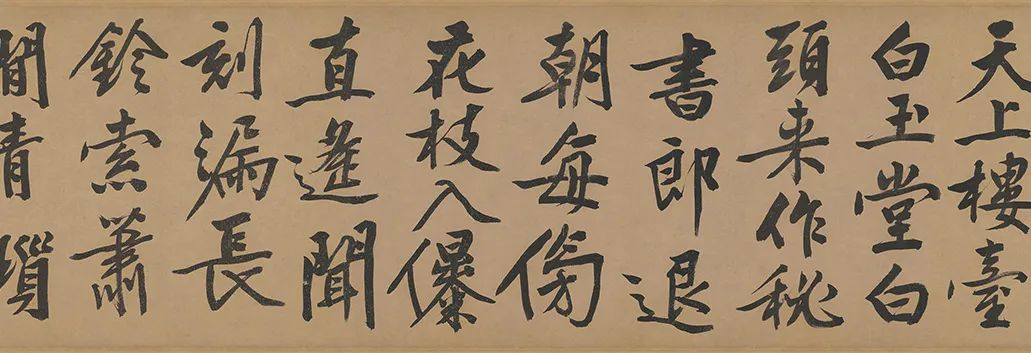 天上樓臺
白玉堂白
頭来作秘
書郎退
朝每傍
花枝入儤
直遥聞
刻漏長
鈴索蕭
閒青瑣